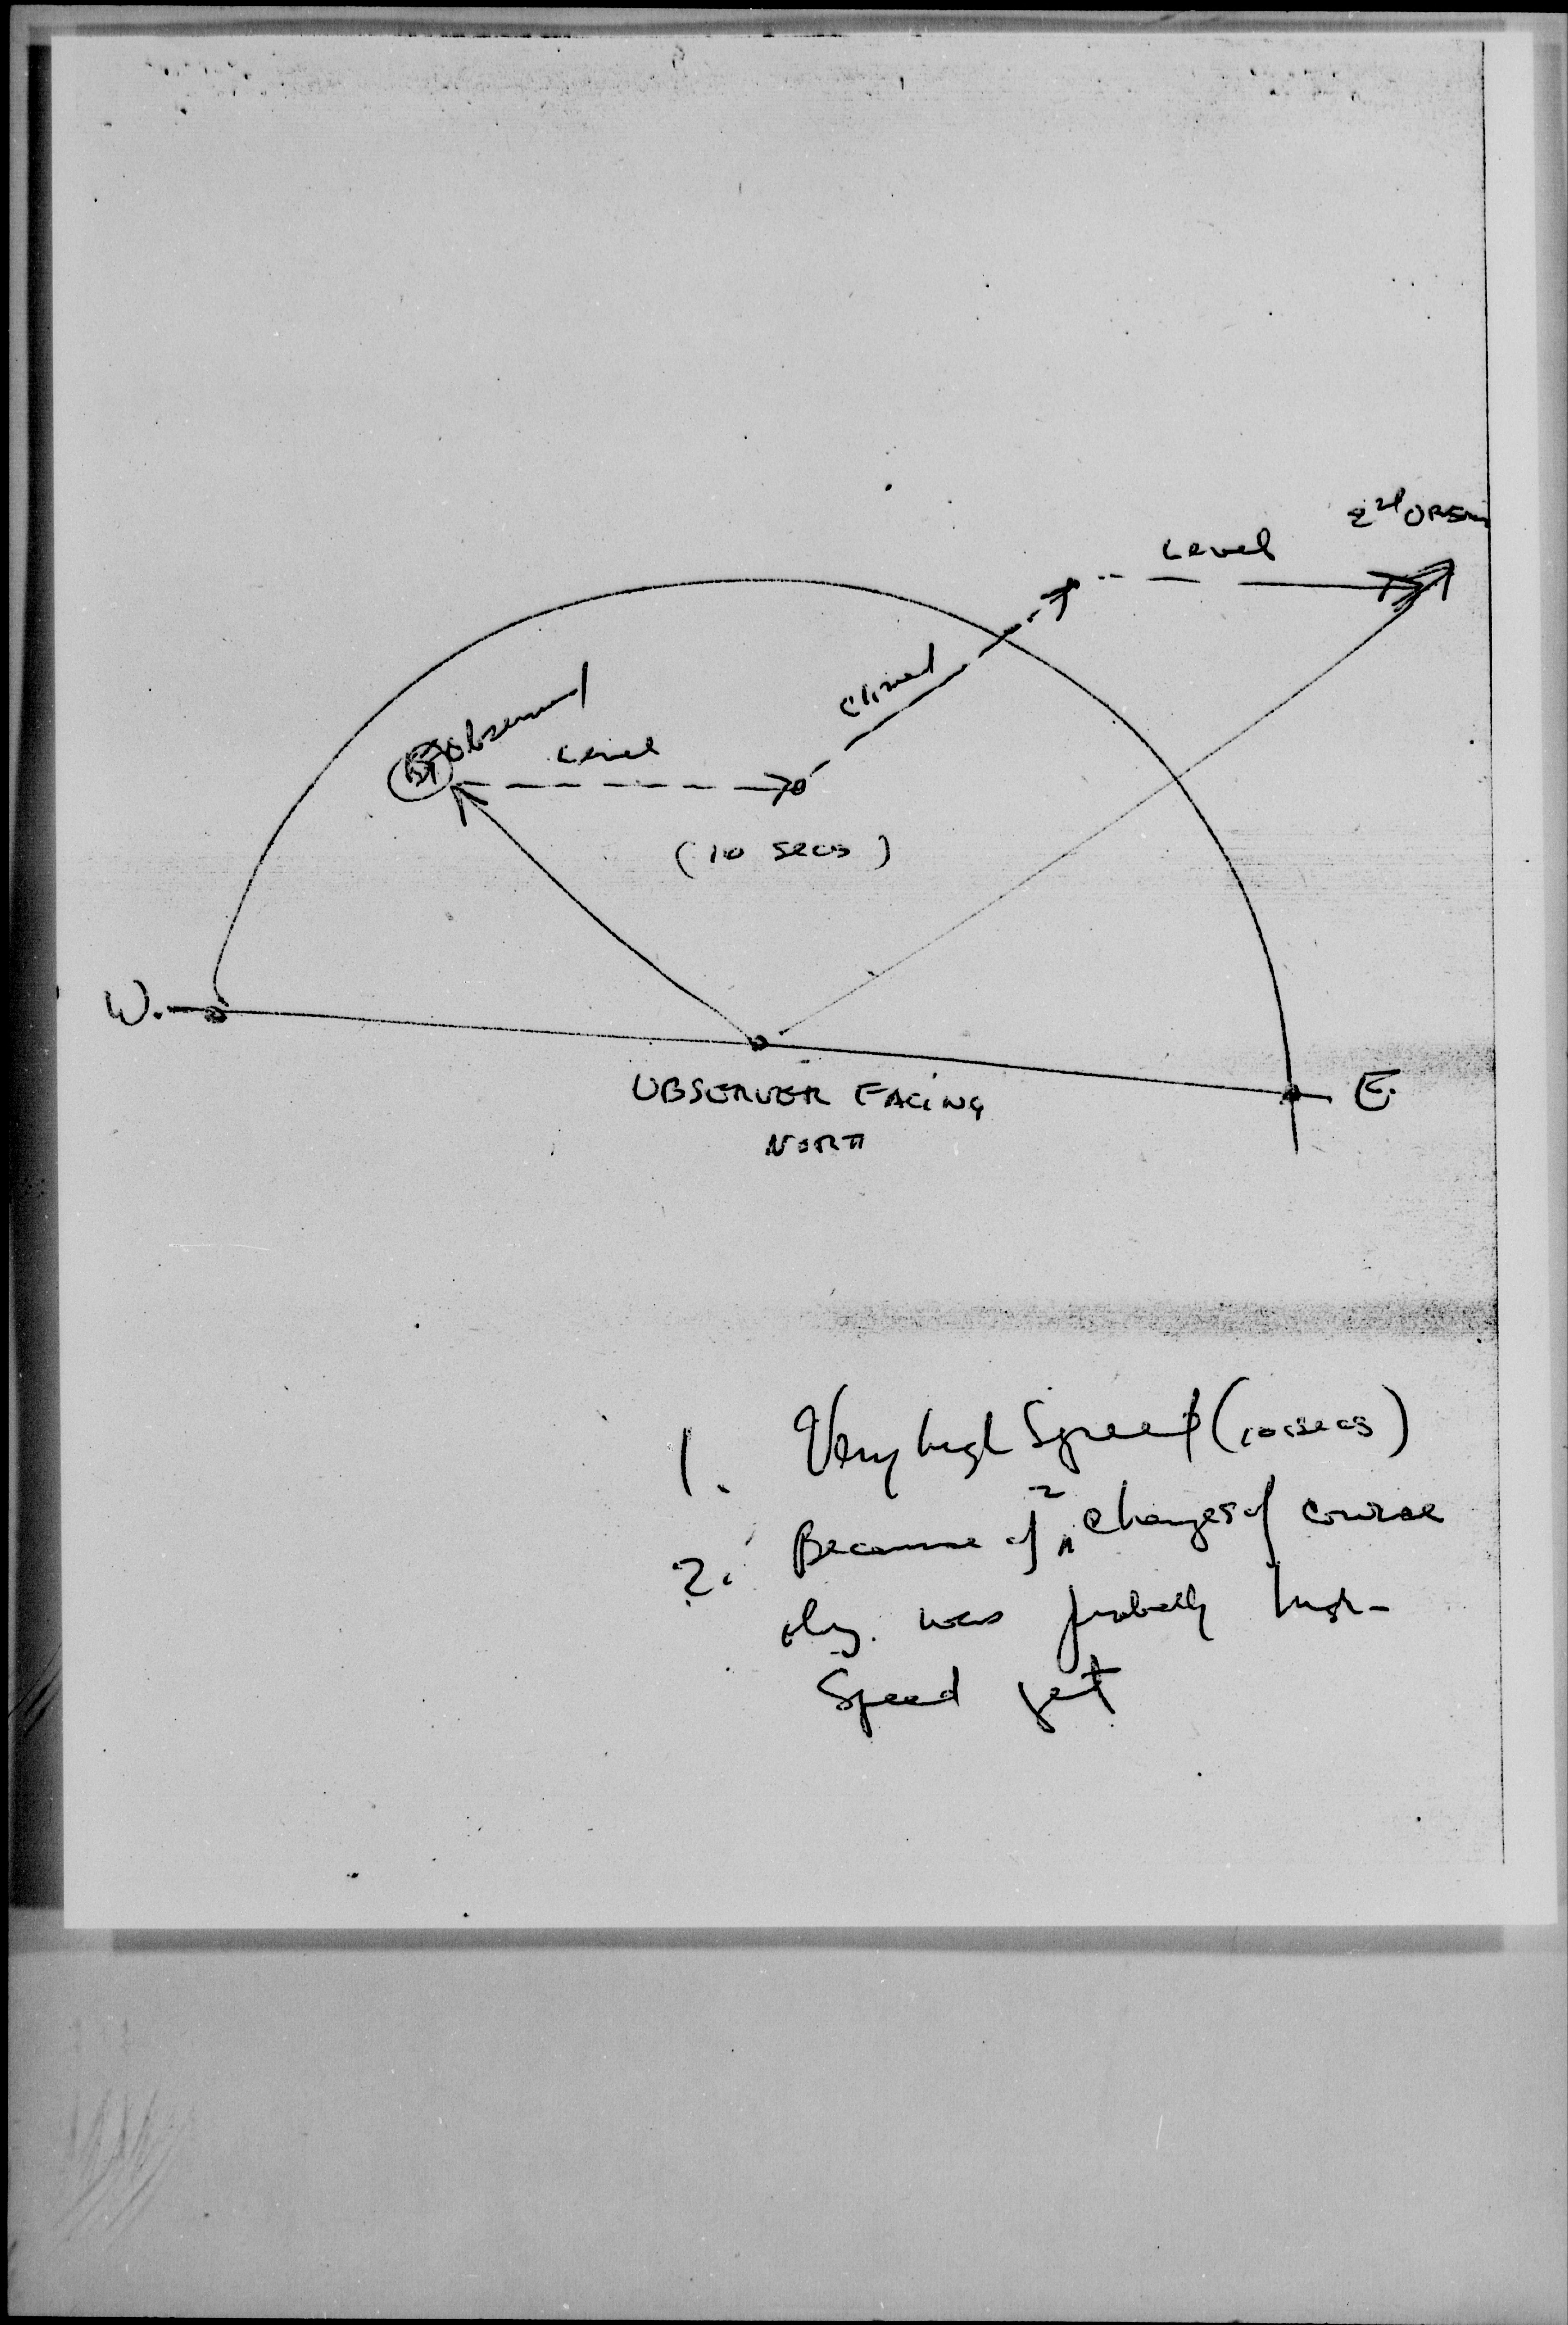 2nd OBSN
Level
Climed
1st Observed
Level
(10 secs)
W.
E.
OBSERVER FACING
NORTH
1. Very high Speed (10 secs)
2. Because of 2 changes of course
obj. was probably high-
Speed jet